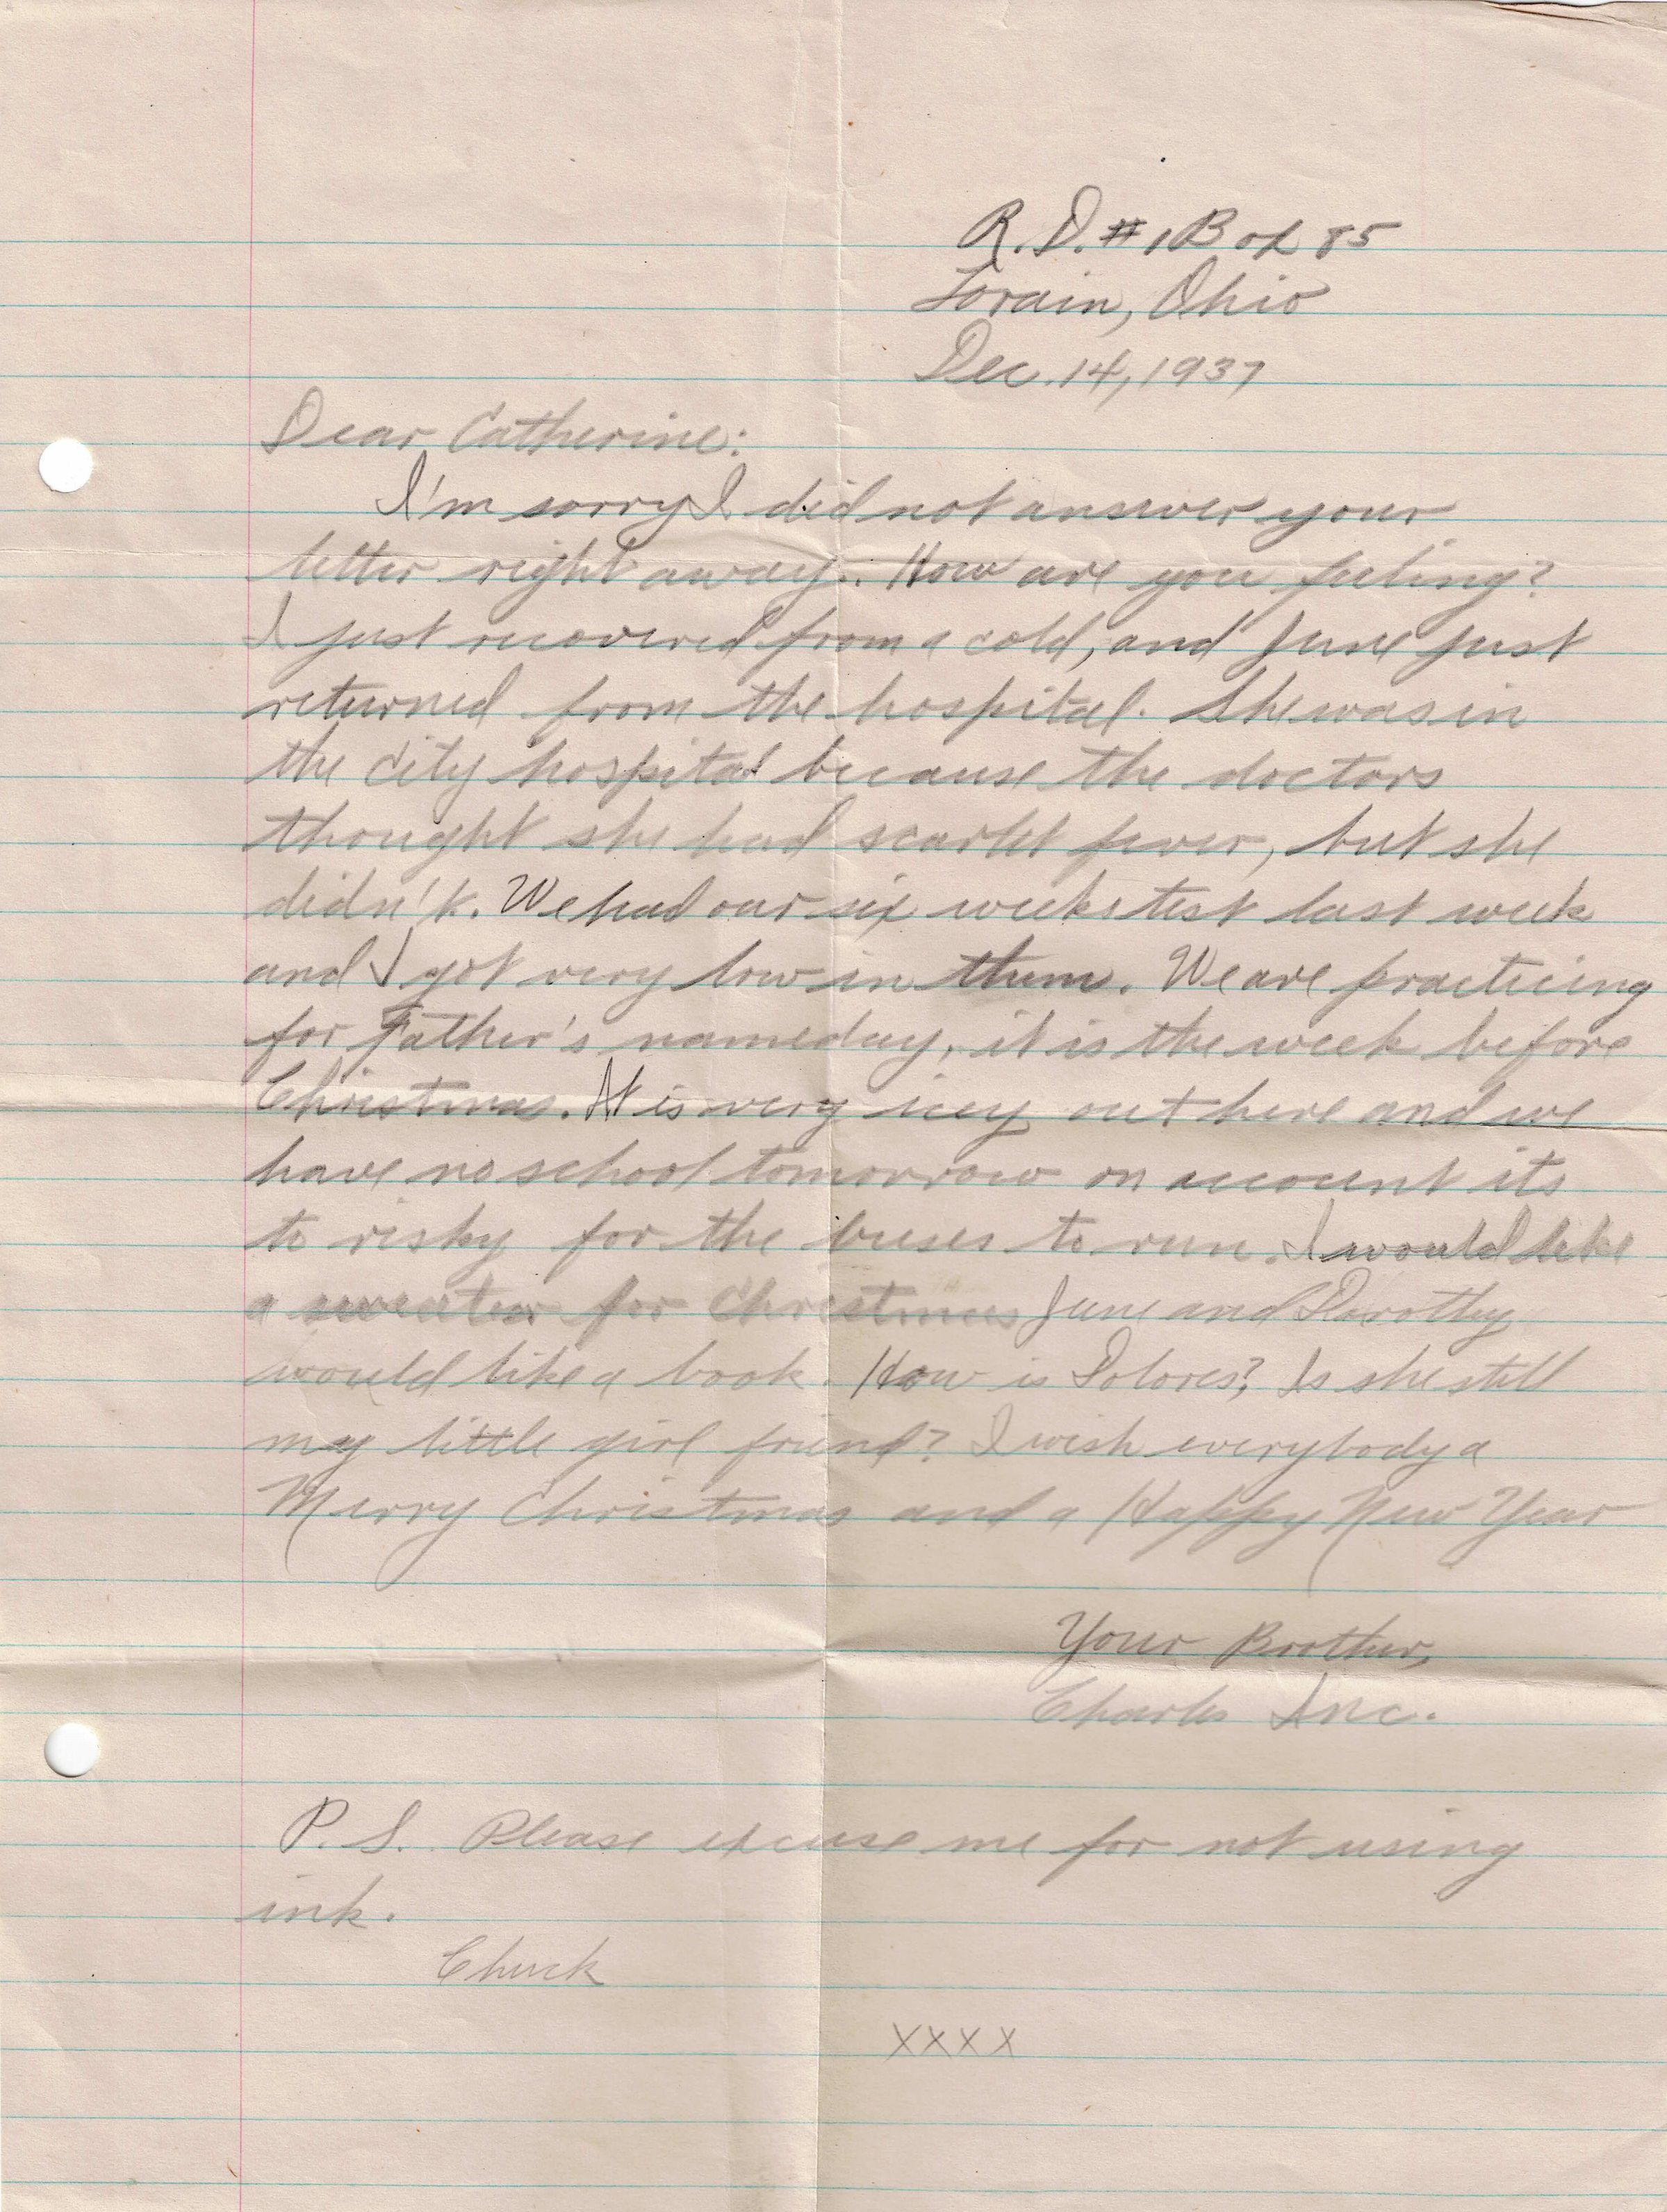 R.D. #1 Box 85
Lorain, Ohio
Dec. 14, 1937
Dear Catherine:
I'm sorry I did not answer your
letter right away. How are you feeling?
I just recovered from a cold, and June just
returned from the hospital. She was in
the city hospital because the doctors
thought she had scarlet fever, but she
didn't. We had our six weeks test last week
and I got very low in them. We are practicing
for Father's nameday, it is the week before
Christmas. It is very icy out here and we
have no school tomorrow on account its
to risky for the buses to run. I would like
a sweater for Christmas June and Dorothy
would like a book. How is Dolores? Is she still
my little girl friend? I wish everybody a
Merry Christmas and a Happy New Year
Your Brother,
Charles Inc.
P.S. Please excuse me for not using
ink.
Chuck
XXXX